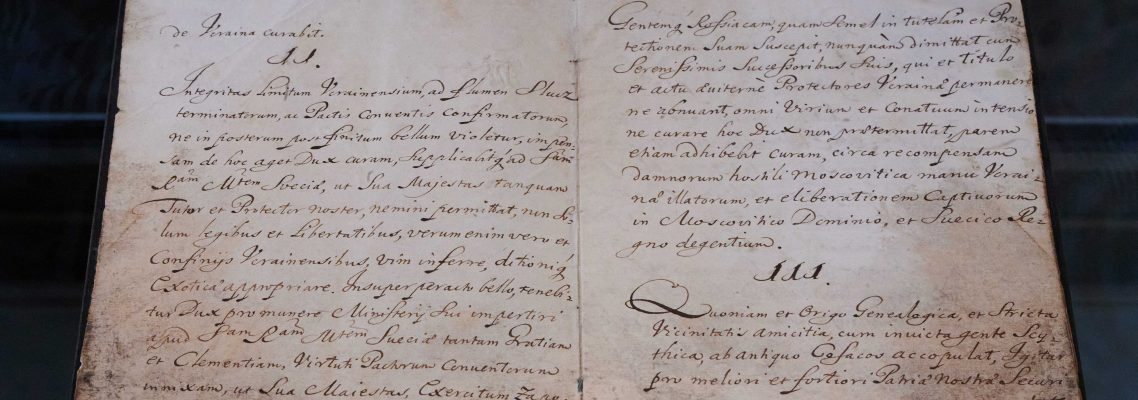 de Ucraina curabit.
II.
Integritas Limitum Ucrainensium, ad flumen Slucz
terminatorum, ac Pactis Conventis Confirmatorum,
ne in posterum post finitum bellum violetur, impen-
sam de hoc aget Dux curam, Supplicabitq ad Sam
Ram Mtem Sveciæ, ut Sua Majestas tanquan
Tutor et Protector noster, nemini permittat, non So-
lum legibus et Libertatibus, verum enim vero et
Confinijs Ucrainensibus, vim inferre, ditioniq
Exoticæ appropriare. Insuper peracto bello, tenebi-
tur Dux pro munere Ministerij Sui impertiri
apud Sam Ram Mtem Sueciæ tantam Gratiam
et Clementiam, Virtuti Pactorum Conventorum
innixam, ut Sua Maiestas, Exercitum Zapo-
Gentemq Rossiacam, quam Semel in tutelam et Pro-
tectionem Suam Suscepit, nunquàm dimittat cum
Serenissimis Successoribus Suis, qui et titulo
et actu æviterne Protectores Ucrainæ permanere
ne abnuant, omni Virium et Conatuum intensio
ne curare hoc Dux non prætermittat, parem
etiam adhibebit curam, circa recompensam
damnorum hostili Moscovitica manu Ucrai-
næ illatorum, et eliberationem Captivorum
in Moscovitico Dominio, et Suecico Re-
gno degentium.
III.
Quoniam et Origo Genealogica, et Stricta
Vicinitatis Amicitia, cum invicta gente Scy-
thica, ab antiquo Cosacos accopulat, Igitur
pro meliori et fortiori Patriæ Nostræ Securi